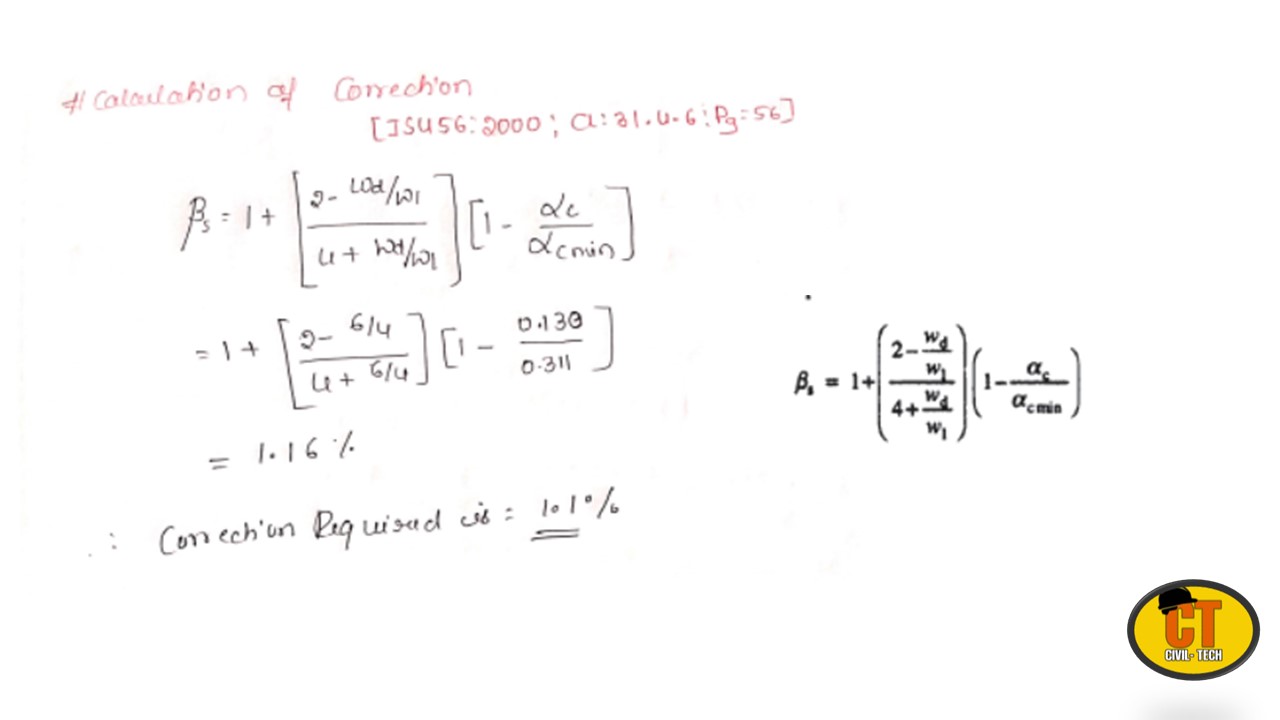 # Calculation of Correction
[IS456:2000; Cl:31.4.6; Pg=56]
βs = 1 + [(2 - Wd/W1)/(4 + Wd/W1)] [1 - αc/αcmin]
= 1 + [(2 - 6/4)/(4 + 6/4)] [1 - 0.130/0.311]
= 1.16 %
∴ Correction Required is = 1.1%
βs = 1+((2-wd/wl)/(4+wd/wl))(1-αc/αc min)
CT
CIVIL- TECH